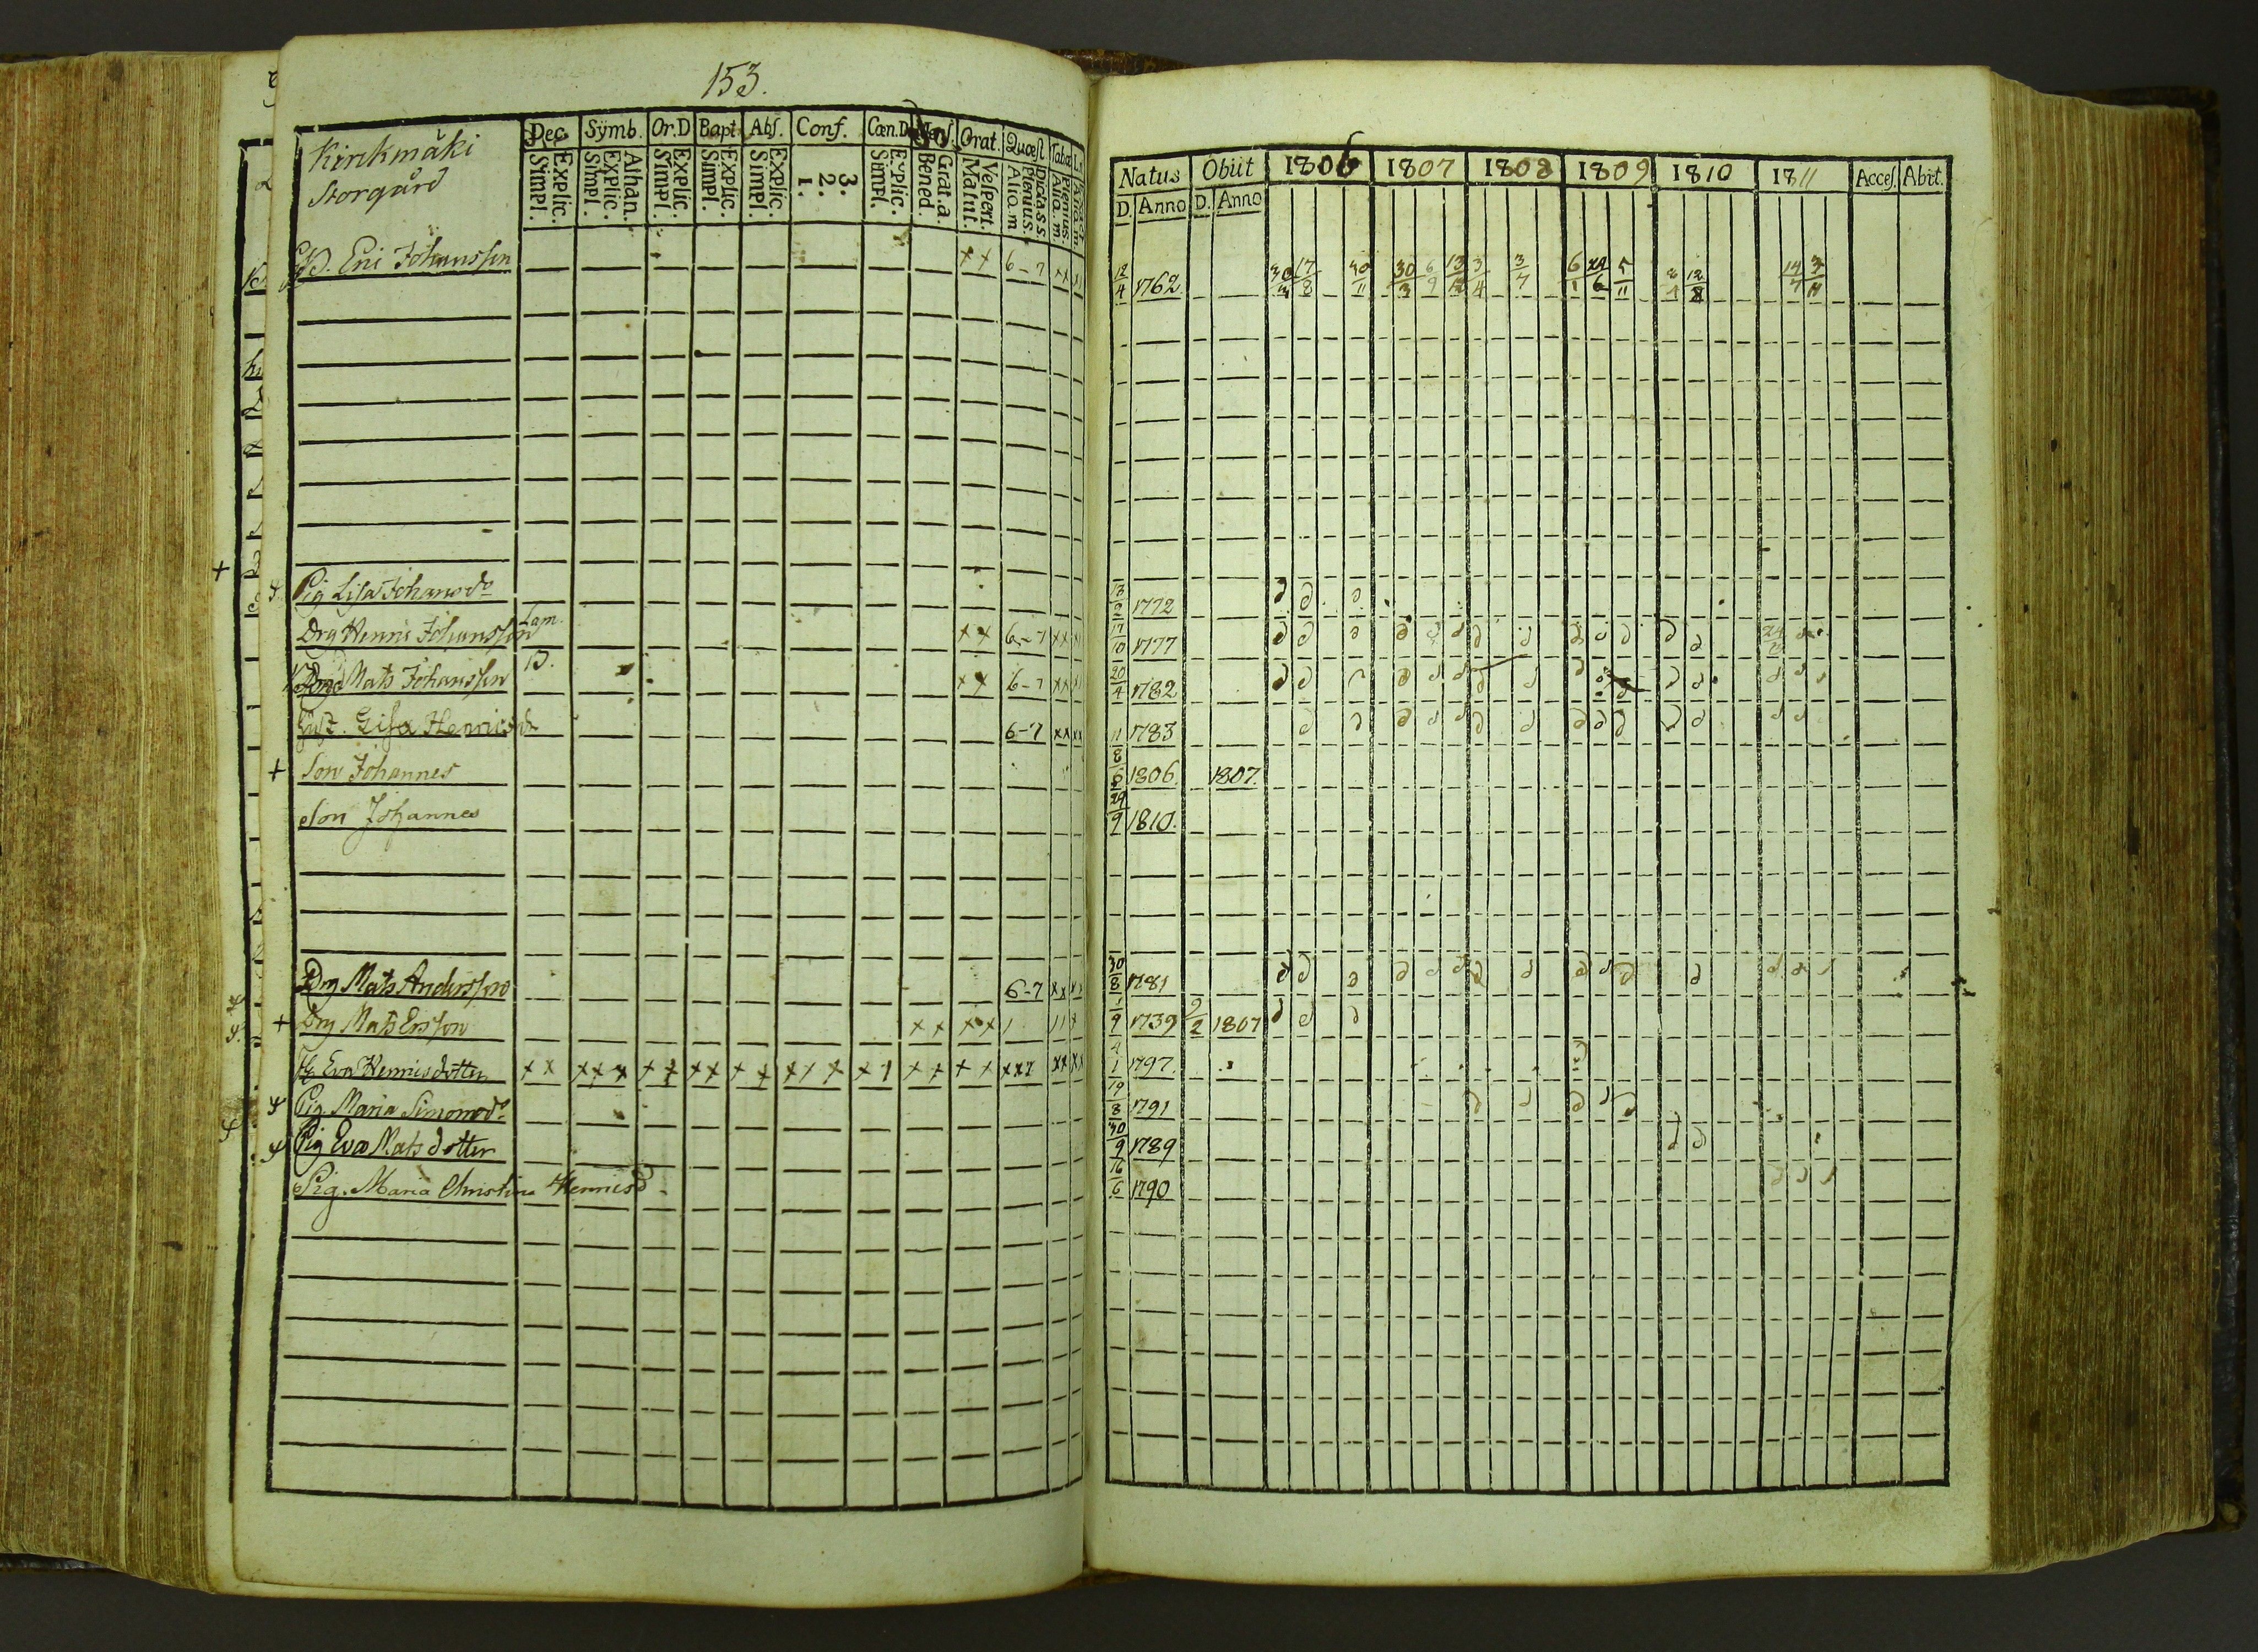 153.
Kirckmäki
Storgård
Dec. Symb. Or.D Bapt. Abſ. Conf. Cœn.D Menſ. Orat. Quæſt. Tabœ
Simpl. Explic. Simpl. Explic. Athan. Simpl. Explic. Simpl. Explic. Simpl. Explic. 1. 2. 3. Simpl. Explic. Bened. Grat.a. Matut. Veſpert. Alio.m Plenius. Didass. Alia.m. Plenius.
Natus Obiit 1806 1807 1808 1809 1810 1811 Acceſ. Abit.
D. Anno D. Anno
Eric Johansson ×× 6-7 ×× 12/4 1762. 30/3 17/8 30/11 30/3 6/9 13/12 3/4 3/7 6/1 6 5/11 4 12/8 14/4 3/11
Pig Lisa Johansd 13/2 1772
Drg Henric Johansson Lam. ×× 6-7 ×× 17/10 1777
Mats Johansson B. ×× 6-7 ×× 20/4 1782
Hust. Lisa Henricsd 6-7 ×× ×× 11/8 1783
+ Son Johannes 6 1806. 1807.
Son Johannes 29/9 1810.
Drg Mats Andersson 6-7 ×× ×× 30/8 1781
+ Drg Mats Ersson ×× ×× 1 11 1/9 1739 9/2 1807
Eva Henricsdotter ×× ××× ×× ×× ×× ××× ×1 ×× ×× ××1 ×× ×× 4/1 1797.
Pig Maria Simonsd. 19/8 1791
Pig Eva Matsdotter 30/9 1789
Pig. Maria Christina Henricsd. 16/6 1790